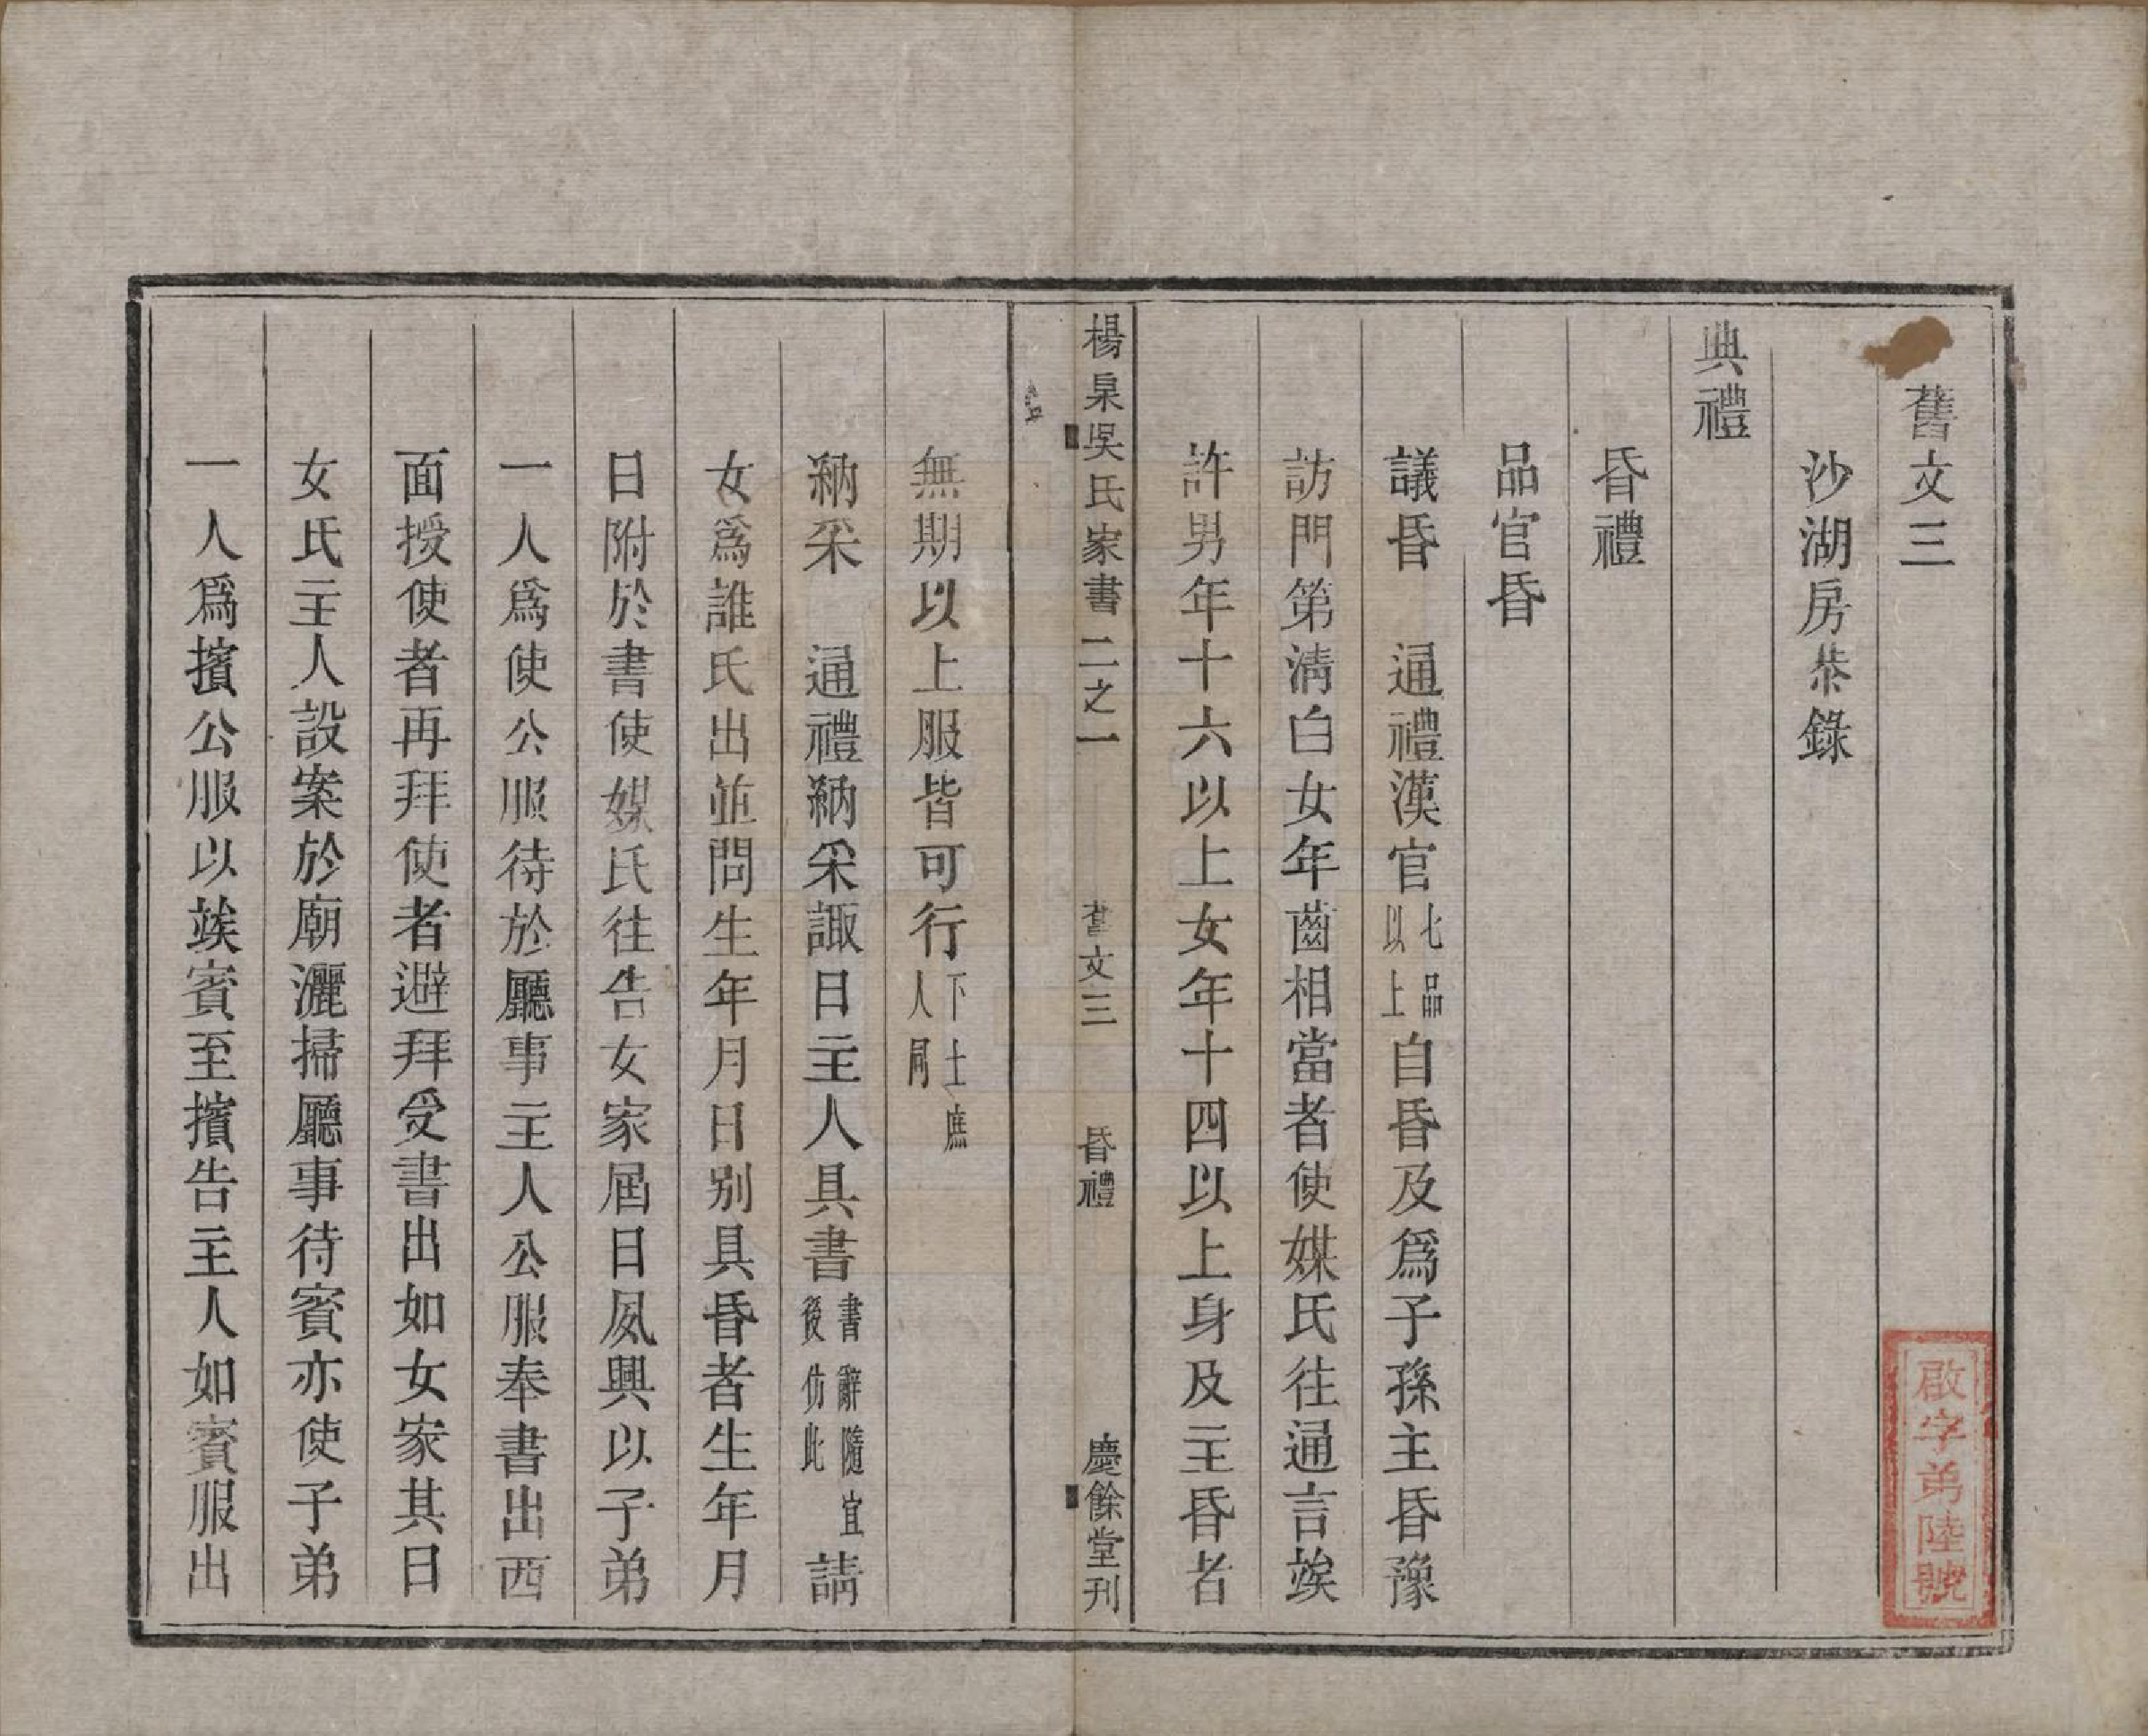 舊文三
沙湖房恭錄
典禮
昏禮
品官昏
議昏　通禮漢官七品以上自昏及爲子孫主昏豫
訪門第清白女年齒相當者使媒氏往通言竢
許男年十六以上女年十四以上身及主昏者
楊泉吳氏家書二之一　舊文三　昏禮　慶餘堂刊
無期以上服皆可行下士庶人同
納采　通禮納采諏日主人具書書辭隨宜後仿此請
女爲誰氏出並問生年月日别具昏者生年月
日附於書使媒氏往告女家屆日夙興以子弟
一人爲使公服待於廳事主人公服奉書出西
面授使者再拜使者避拜受書出如女家其日
女氏主人設案於廟灑掃廳事待賓亦使子弟
一人爲擯公服以竢賓至擯告主人如賓服出
啟字弟陸號